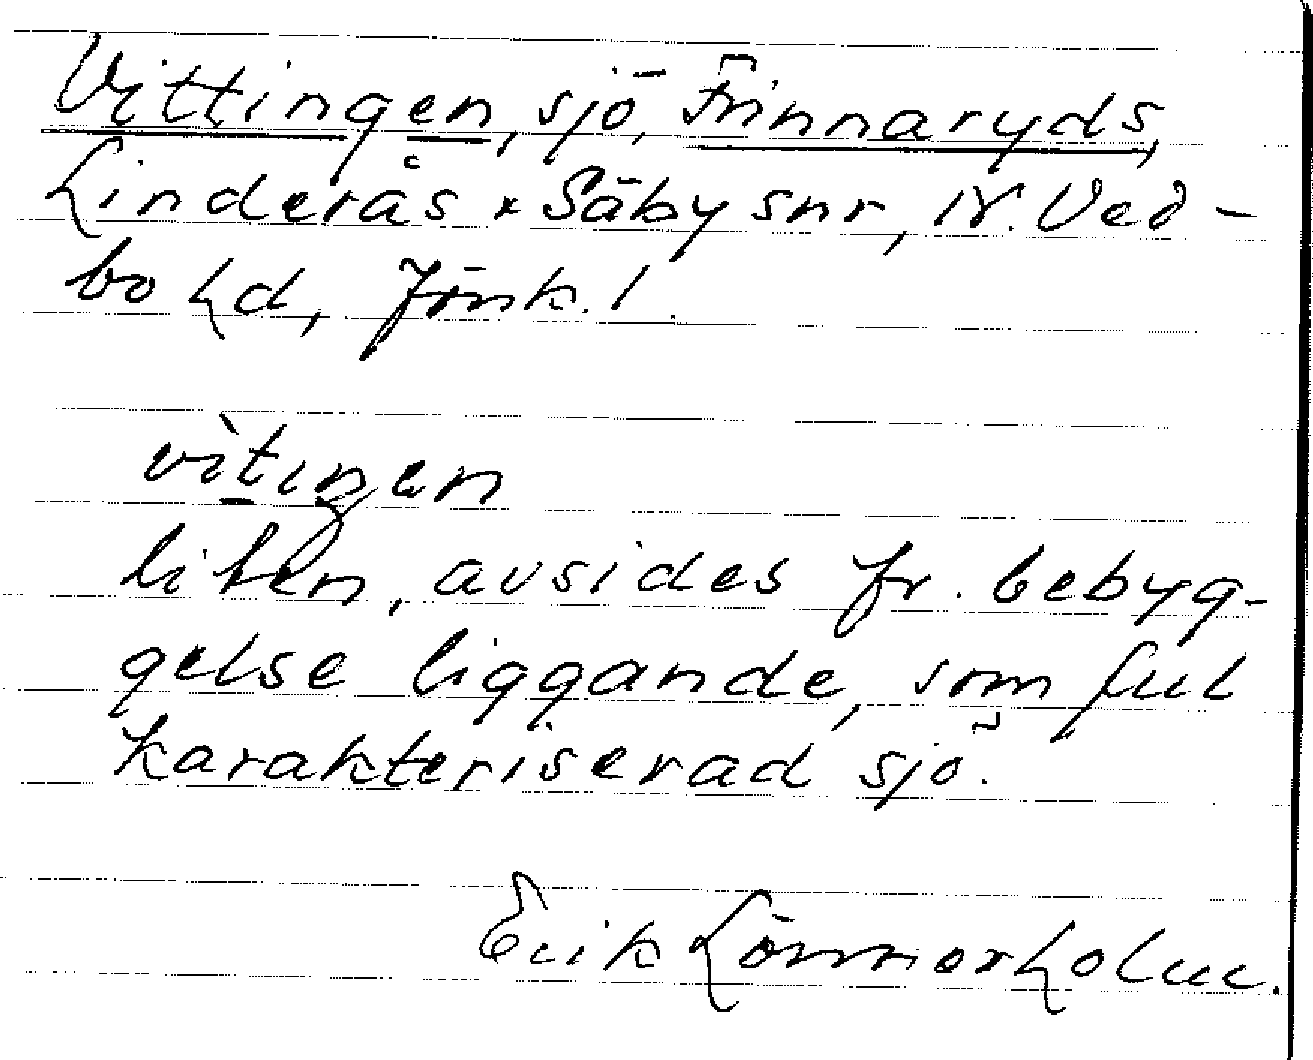 Vittingen, sjö, Frinnaryds,
Linderås o Säby snr, N. Ved-
bo hd, Jönk. l.
vìtiŋen
liten, avsides fr. bebyg-
gelse liggande, som ful
karakteriserad sjö.
Erik Lönnerholm.